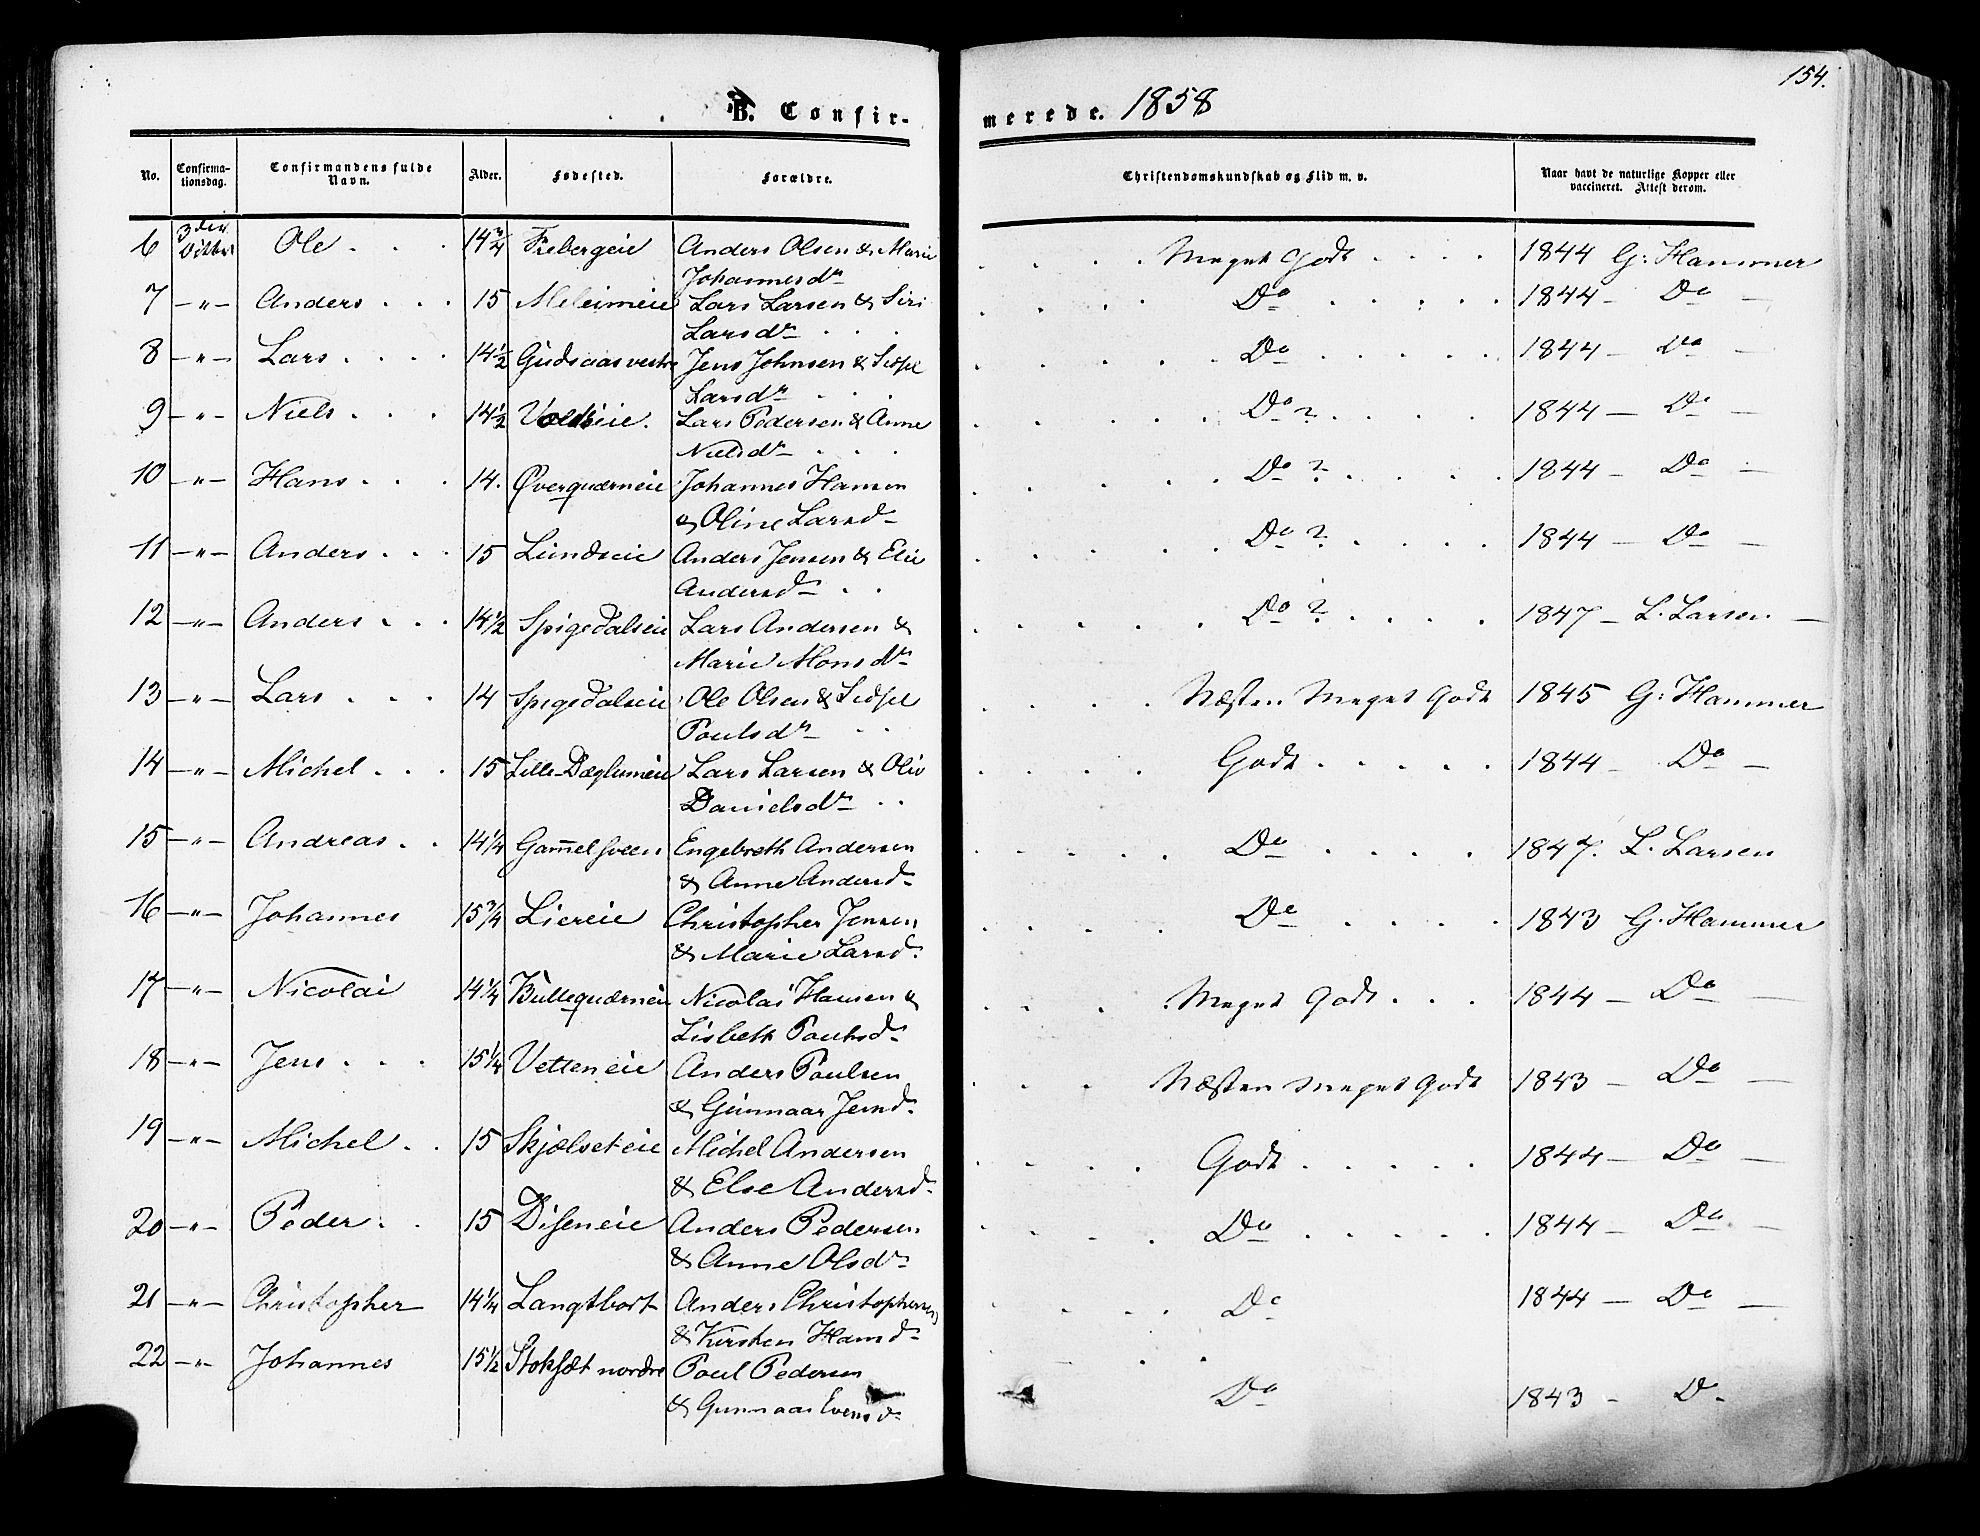 154.
B. Confir-
merede. 1858
No.
Confirma-
tionsdag.
Confirmandens fulde
Navn.
Alder.
Fødested.
Forældre.
Christendomskundskab og Flid m. v.
Naar havt de naturlige Kopper eller
vaccineret. Attest derom.
6 3die Octbr Ole . . . 14 3/4 Frebergeie Anders Olsen & Marie . . . . Meget Godt . . . . 1844 G: Hammer
Johannesdr
7 —"— Anders . . . 15 Meleimeie Lars Larsen & Siri . . . . Do . . . . . 1844 — Do —
Larsdr . . .
8 —"— Lars . . . . 14 1/2 Gudsaas vestre Jens Johnsen & Sidsel . . . . . Do . . . . . 1844 — Do —
Larsdr . . .
9 —"— Niels . . . . 14 1/2 Voldseie. Lars Pedersen & Anne . . . . . Do ? . . . . 1844 — Do —
Nielsdr . . .
10 —"— Hans . . . 14. Øverquærneie Johannes Hansen . . . . . Do ? . . . . . 1844 — Do —
& Oline Larsd.
11 —"— Anders . . . 15 Lundseie Anders Jensen & Elie . . . . . Do ? . . . . 1844 — Do —
Andersd. . .
12 —"— Anders . . . 14 1/2 Spigedalseie Lars Andersen & . . . . . Do ? . . . . 1847 — L. Larsen —
Marie Monsdr
13 —"— Lars . . . 14 Spigedalseie Ole Olsen & Sidsel . . . . Næsten Meget Godt 1845 G: Hammer
Poulsdr . .
14 —"— Michel . . . 15 Lille-Dæglumeie Lars Larsen & Olie . . . . Godt . . . . . 1844 — Do —
Danielsdr . .
15 —"— Andreas . . 14 1/4 Gam̄elsveen Engebreth Andersen . . . . . Do . . . . 1847. L. Larsen
& Anne Andersd.
16 —"— Johannes 15 3/4 Liereie Christopher Jensen . . . . Do . . . . 1843 G. Hammer
& Marie Larsd.
17 —"— Nicolai 14 1/4 Bullequærneie Nicolai Hansen & . . . Meget Godt . . . 1844 — Do —
Lisbeth Poulsd.
18 —"— Jens . . . 15 1/4 Vetteneie Anders Poulsen . . . Næsten Meget Godt 1843 — Do —
& Gunnaar Jensd.
19 —"— Michel . . 15 Skjælseteie Michel Andersen . . . . Godt . . . . . 1844 — Do —
& Else Andersd.
20 —"— Peder . . 15 Diseneie Anders Pedersen . . . . Do . . . . . 1844 — Do —
& Anne Olsdr
21 —"— Christopher 14 1/4 Langtbort Anders Christophersen . . . . Do 1844 — Do —
& Kirsten Hansd.
22 —"— Johannes 15 1/2 Stoksæt nordre Poul Pedersen . . . Do 1843 — Do
& Gunnaar Evensd.